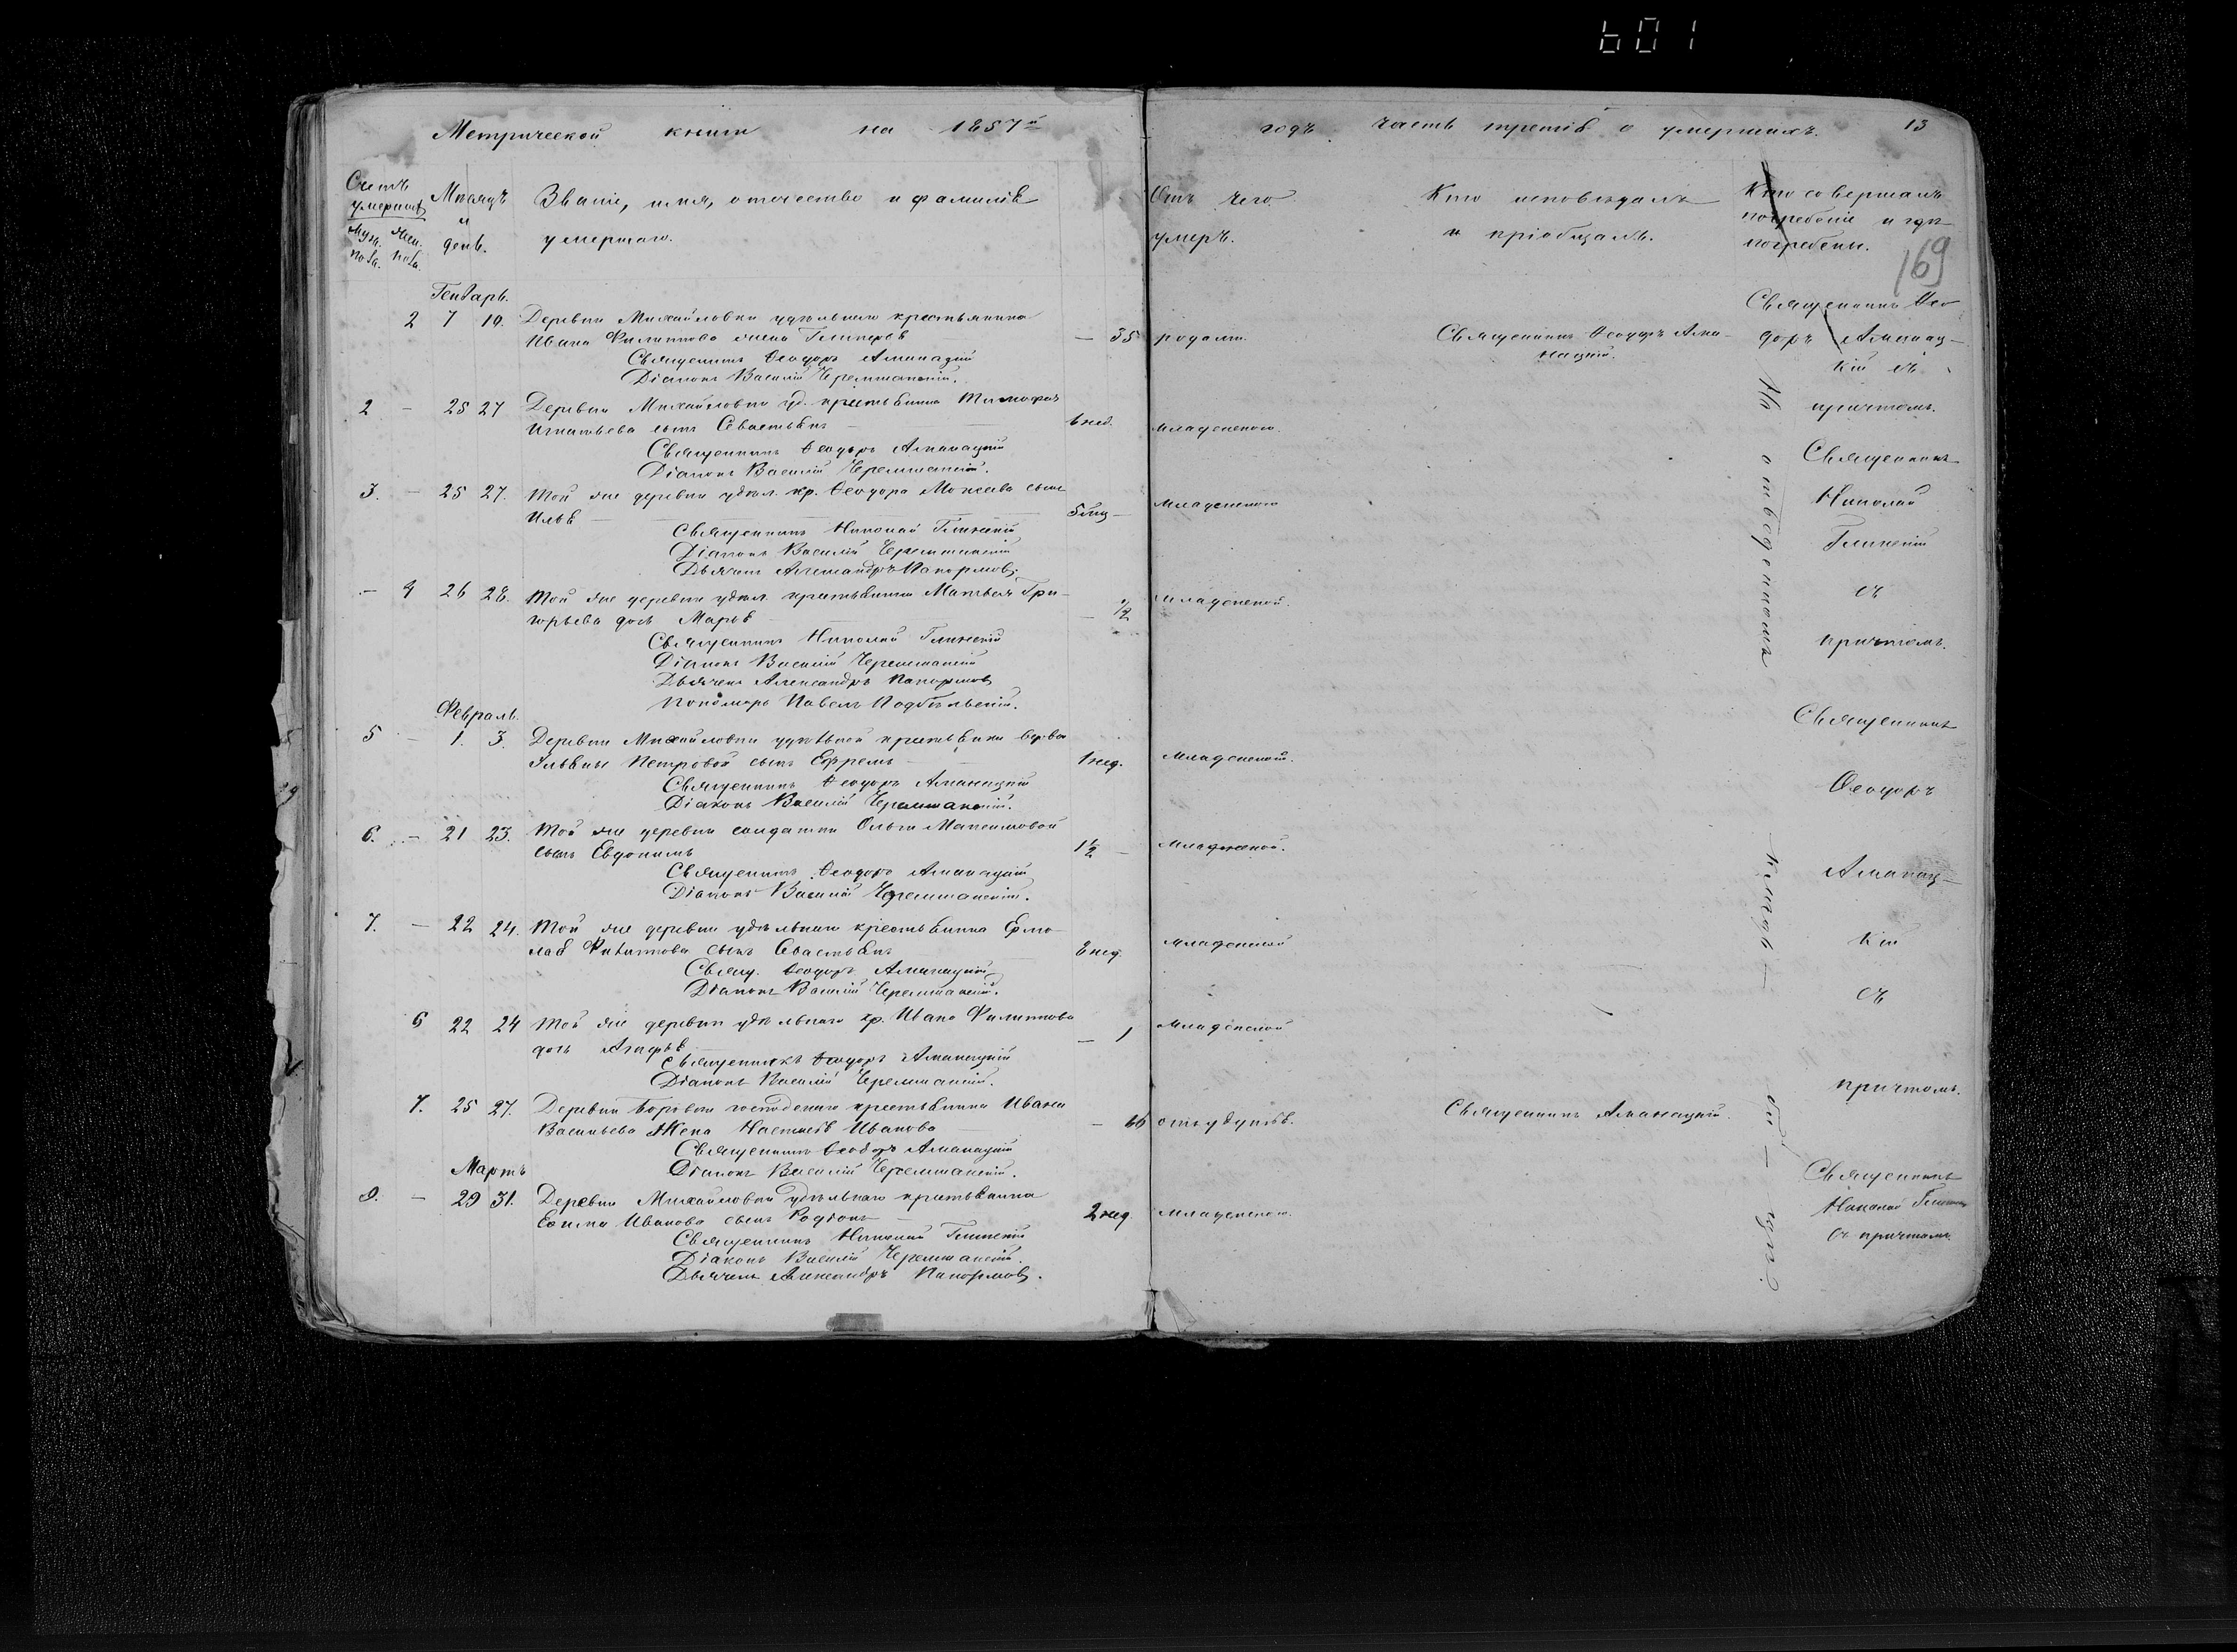 601
Метрической книги на 1857й
годъ часть третія о умершихъ. 13
169
Счетъ умершихъ
Муж. пола. Жен. пола.
Мѣсяцъ и день.
Званіе, имя, отечество и фамилія
умершаго.
Отъ чего
умеръ.
Кто исповѣдалъ
и пріобщалъ.
Кто совершалъ
погребеніе и гдѣ
погребены.
Генварь.
2 7 19. Деревни Михайловки удѣльнаго крестьянина
Ивана Филиппова жена Гликерія — 35 родами.
Священникъ Ѳеодоръ Аманацкій.
Священникъ Ѳеодоръ Аманацкій
Діаконъ Василій Черемшанскій.
2 — 25 27 Деревни Михайловки уд. крестьянина Тимофея
Игнатьева сынъ Севастьянъ — 6 нед. младенческою.
Священникъ Ѳеодоръ Аманацкій
Діаконъ Василій Черемшанскій.
3. — 25 27. Той же деревни удѣл. кр. Ѳеодора Моисеева сынъ
Илья — 5 мц — младенческою
Священникъ Николай Глинскій
Діаконъ Василій Черемшанскій
Дьячекъ Александръ Панормовъ.
— 4 26 28. Той же деревни удѣл. крестьянина Матвея Гри-
горьева дочь Марья — 1/2 младенческой.
Священникъ Николай Глинскій
Діаконъ Василій Черемшанскій
Дьячекъ Александръ Панормовъ
Пономарь Павелъ Подбѣльскій.
Февраль.
5 — 1. 3. Деревни Михайловки удѣльной крестьянки
Петровой сынъ Ефремъ — 1 нед. младенческой.
Священникъ Ѳеодоръ Аманацкій
Діаконъ Василій Черемшанскій.
6. — 21 23. Той же деревни солдатки Ольги Максимовой
сынъ Евдокимъ 1 1/2 — младенческой.
Священникъ Ѳеодоръ Аманацкій
Діаконъ Василій Черемшанскій.
7. — 22 24. Той же деревни удѣльнаго крестьянина Ермо-
лая Филиппова сынъ Севастьянъ нед. младенческой
Свящ. Ѳеодоръ Аманацкій
Діаконъ Василій Черемшанскій.
22 24 Той же деревни удѣльнаго кр. Ивана Филиппова
дочь Агафья — 1 младенческой
Священникъ Ѳеодоръ Аманацкій
Діаконъ Василій Черемшанскій.
7. 25 27. Деревни крестьянина Ивана
Васильева Жена Настасія Иванова — 66 отъ удушья.
Священникъ Аманацкій.
Священникъ Ѳеодоръ Аманацкій
Діаконъ Василій Черемшанскій.
Мартъ
8. — 29 31. Деревни Михайловки удѣльнаго крестьянина
Иванова сынъ Родіонъ — 2 нед. младенческою.
Священникъ Николай Глинскій
Діаконъ Василій Черемшанскій.
Дьячекъ Александръ Панормовъ.
Священникъ Ѳео-
доръ Аманац-
кій съ
причтомъ.
Священникъ
Николай
Глинскій
съ
причтомъ.
Священникъ
Ѳеодоръ
Аманац-
кій
съ
причтомъ.
Священникъ
Николай Глинскій
съ причтомъ.
На отведенномъ